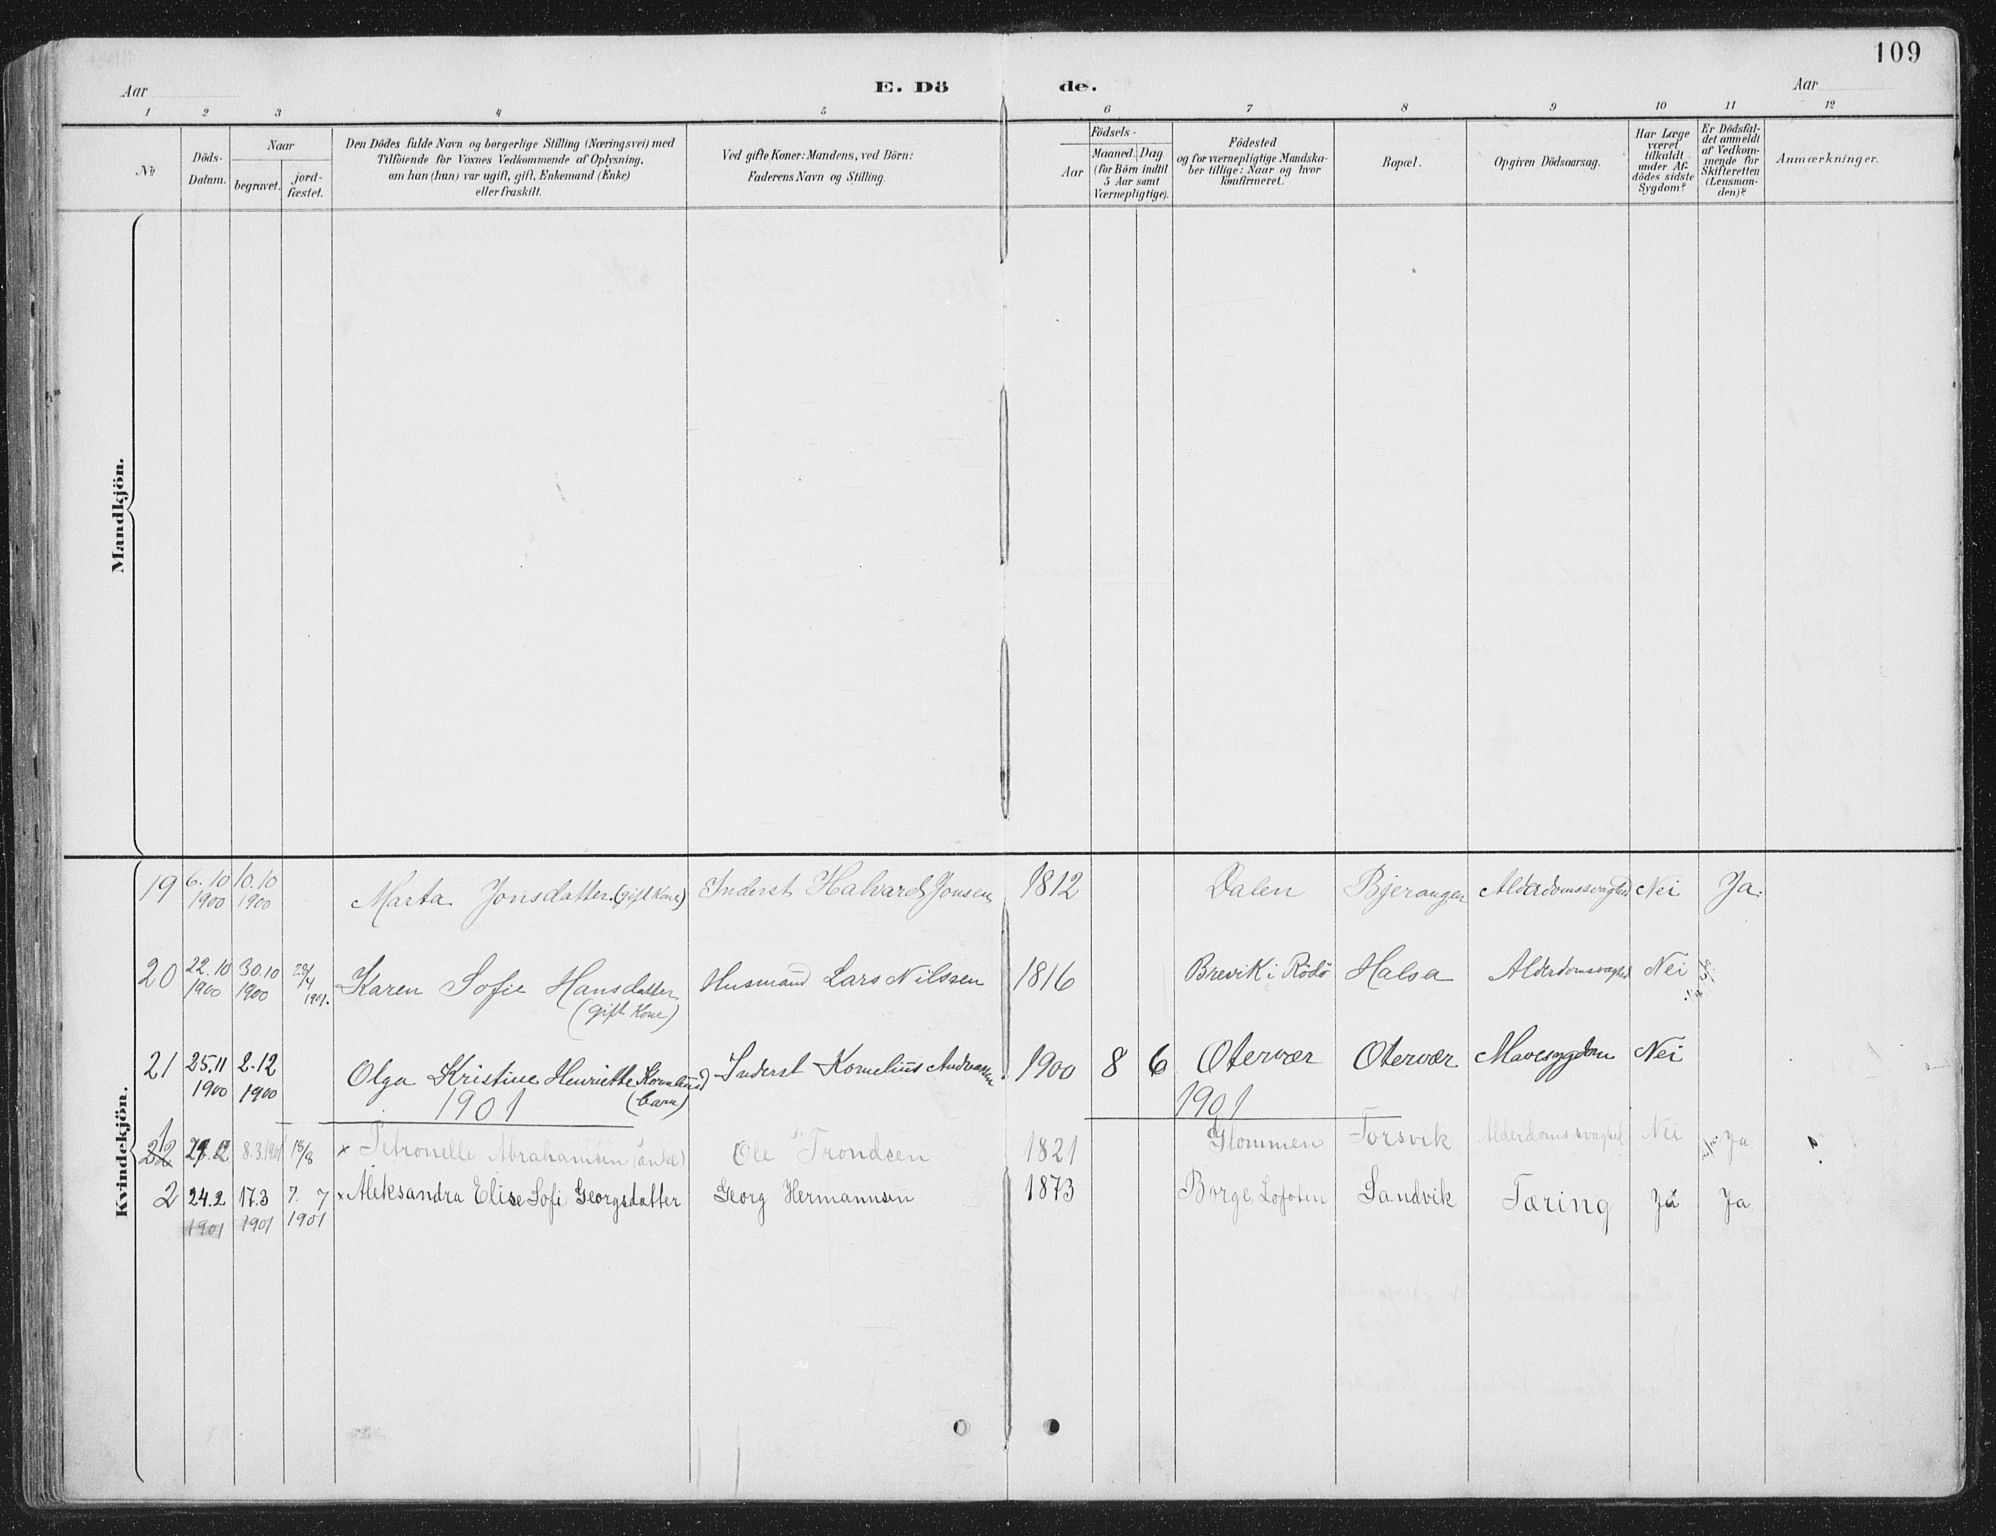 109
Aar
E. Dö de.
Aar
1 2 3 4 5 6 7 8 9 10 11 12
No
Döds-
Datum.
Naar
begravet.
jord-
fæstet.
Den Dödes fulde Navn og borgerlige Stilling (Næringsvei) med
Tilföiende for Voxnes Vedkommende af Oplysning,
om han (hun) var ugift, gift, Enkemand (Enke)
eller fraskilt.
Ved gifte Koner: Mandens, ved Börn:
Faderens Navn og Stilling.
Födsels-
Aar
Maaned. Dag
(for Börn indtil
5 Aar samt
Værnepligtige).
Födested
og for værnepligtige Mandska-
ber tillige: Naar og hvor
konfirmeret.
Bopæl.
Opgiven Dödsaarsag.
Har Læge
været
tilkaldt
under Af-
dödes sidste
Sygdom?
Er Dödsfal-
det anmeldt
af Vedkom-
mende for
Skifteretten
(Lensman-
den)?
Anmærkninger.
Mandkjön.
Kvindekjön.
19 6.10 1900 10.10 1900 Marta Jonsdatter (gift Kone) Inderst Halvard Jonsen 1812 Dalen Bjerangen Alderdomssvaghed Nei Ja.
20 22.10 1900 30.10 1900 28/4 1901. Karen Sofie Hansdatter (gift Kone) Husmand Lars Nilssen 1816 Brevik i Rödö Halsa Alderdomsvaghed Nei
21 25.11 1900 2.12 1900 Olga Kristine Henriette Kornelius (barn) Inderst Kornelius Andreassen 1900 8 6 Otervær Otervær Mavesygdom Nei
1901 1901
1 22 8.3.1901 18/8 x Petronelle Abrahamsen (enke) Ole Trondsen 1821 Glommen Forsvik Alderdomssvaghed Nei Ja
2 24.2 1901 17.3 1901 7. 7 1901 x Aleksandra Elise Sofi Georgsdatter Georg Hermannsen 1873 Borge Lofoten Sandvik Tæring Ja Ja